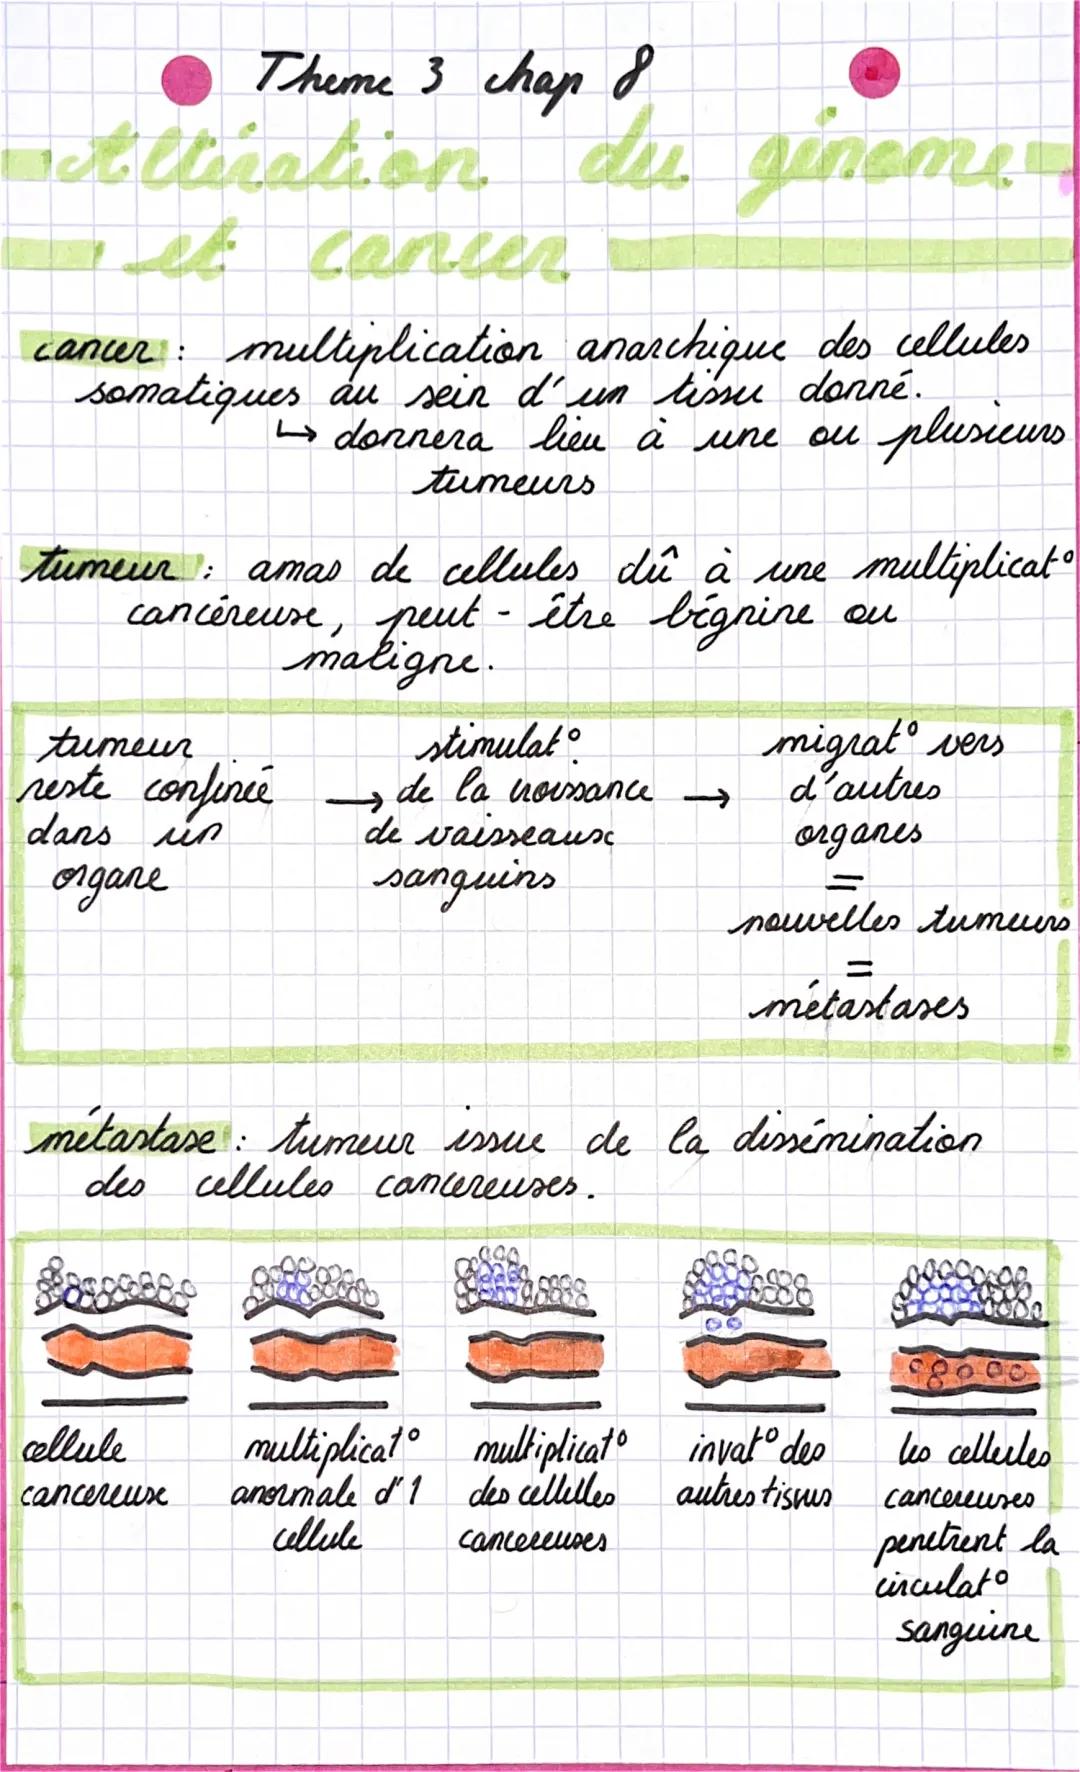 Theme 3 chap 8
Altération du génome
et cancer
cancer : multiplication anarchique des cellules
somatiques au sein d'un tissu donné.
↳ donnera lieu à une ou plusieurs
tumeurs
tumeur : amas de cellules dû à une multiplicat°
cancéreuse, peut-être bégnine ou
maligne.
tumeur
reste confinée
dans un
organe
→ stimulat°
de la croissance
de vaisseaux
sanguins
→ migrat° vers
d'autres
organes
=
nouvelles tumeurs
=
métastases
métastase : tumeur issue de la dissémination
des cellules cancereuses.
cellule
cancereuse
multiplicat°
anormale d'1
cellule
multiplicat°
des cellules
cancereuses
invat° des
autres tissus
les cellules
cancereuses
penetrent la
circulat°
sanguine